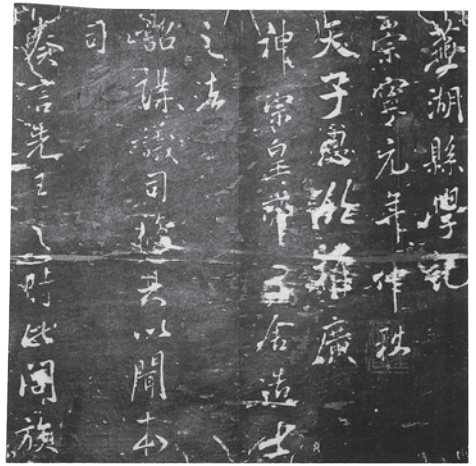 蕪湖縣學記
崇寧元年仲秋
天子 廣
神宗皇帝三舍造士
之法
詔講議司 具以聞本
司
奏言先王之時比閭族